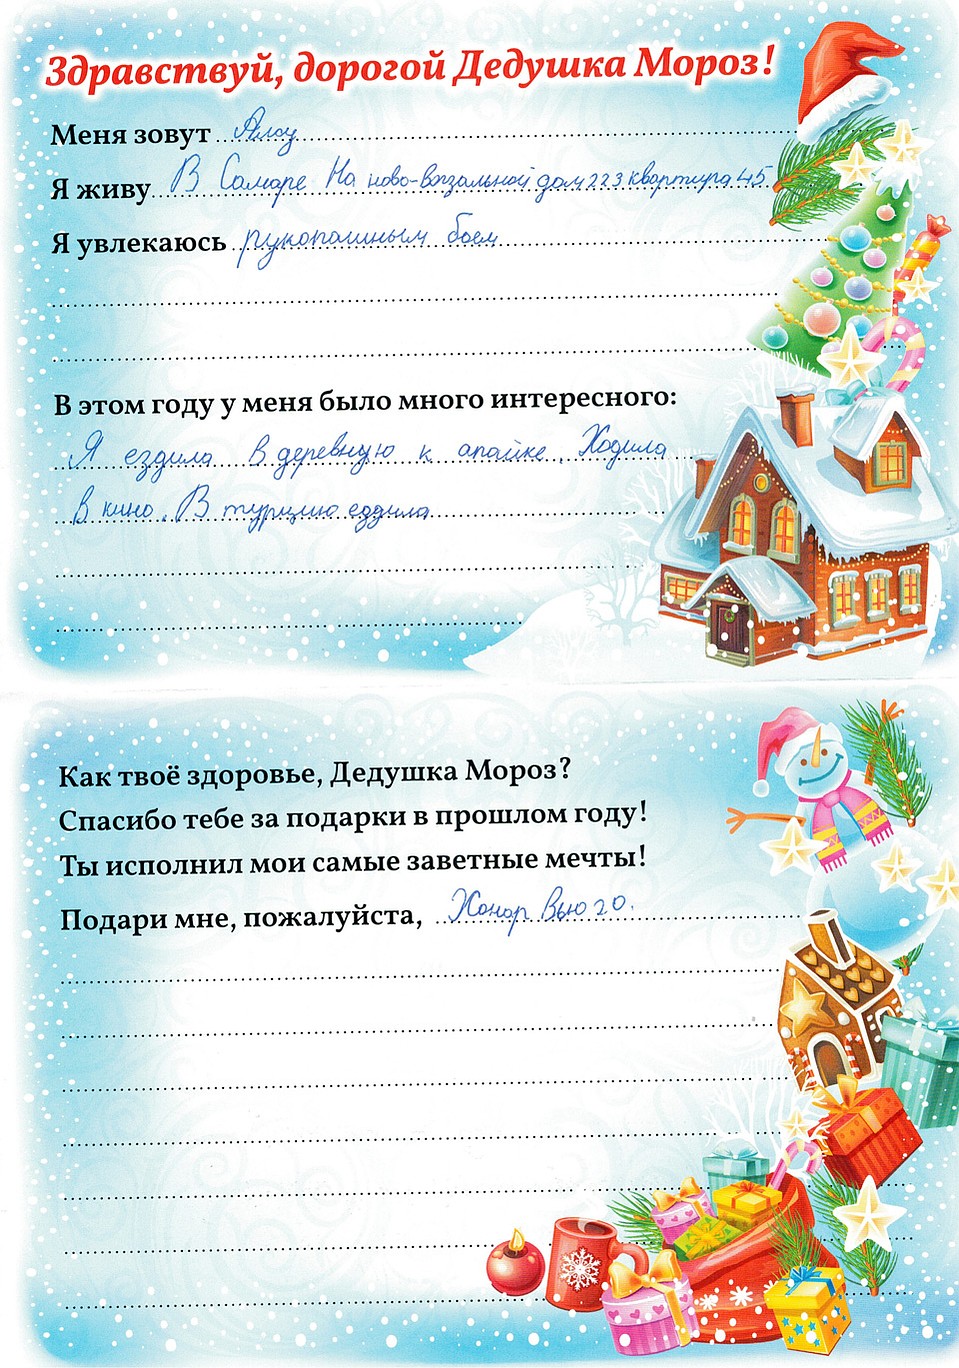 Здравствуй, дорогой Дедушка Мороз!
Меня зовут Алсу
Я живу В Самаре На ново-вокзальной дом 223 квартира 45
Я увлекаюсь рукопашным боем
В этом году у меня было много интересного:
Я ездила в деревную к апайке. Ходила
в кино. В турцию ездила
Как твоё здоровье, Дедушка Мороз?
Спасибо тебе за подарки в прошлом году!
Ты исполнил мои самые заветные мечты!
Подари мне, пожалуйста, Хонор Вью 20.